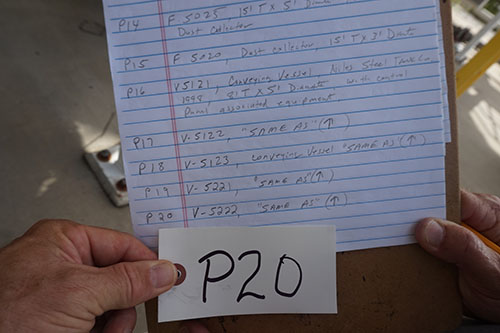 P14 F 5025 15' T X 5' Diameter
Dust Collector
P15 F 5020, Dust collector 15' T X 3' Diameter
P16 V 5121, Conveying Vessel, Niles Steel Tank Co
1998, 8' T X 5' Diameter with control
Panel associated equipment.
P17 V-5122, "SAME AS" (↑)
P18 V-5123, Conveying Vessel "SAME AS" (↑)
P19 V-5221, "SAME AS" (↑)
P20 V-5222, "SAME AS" (↑)
P20